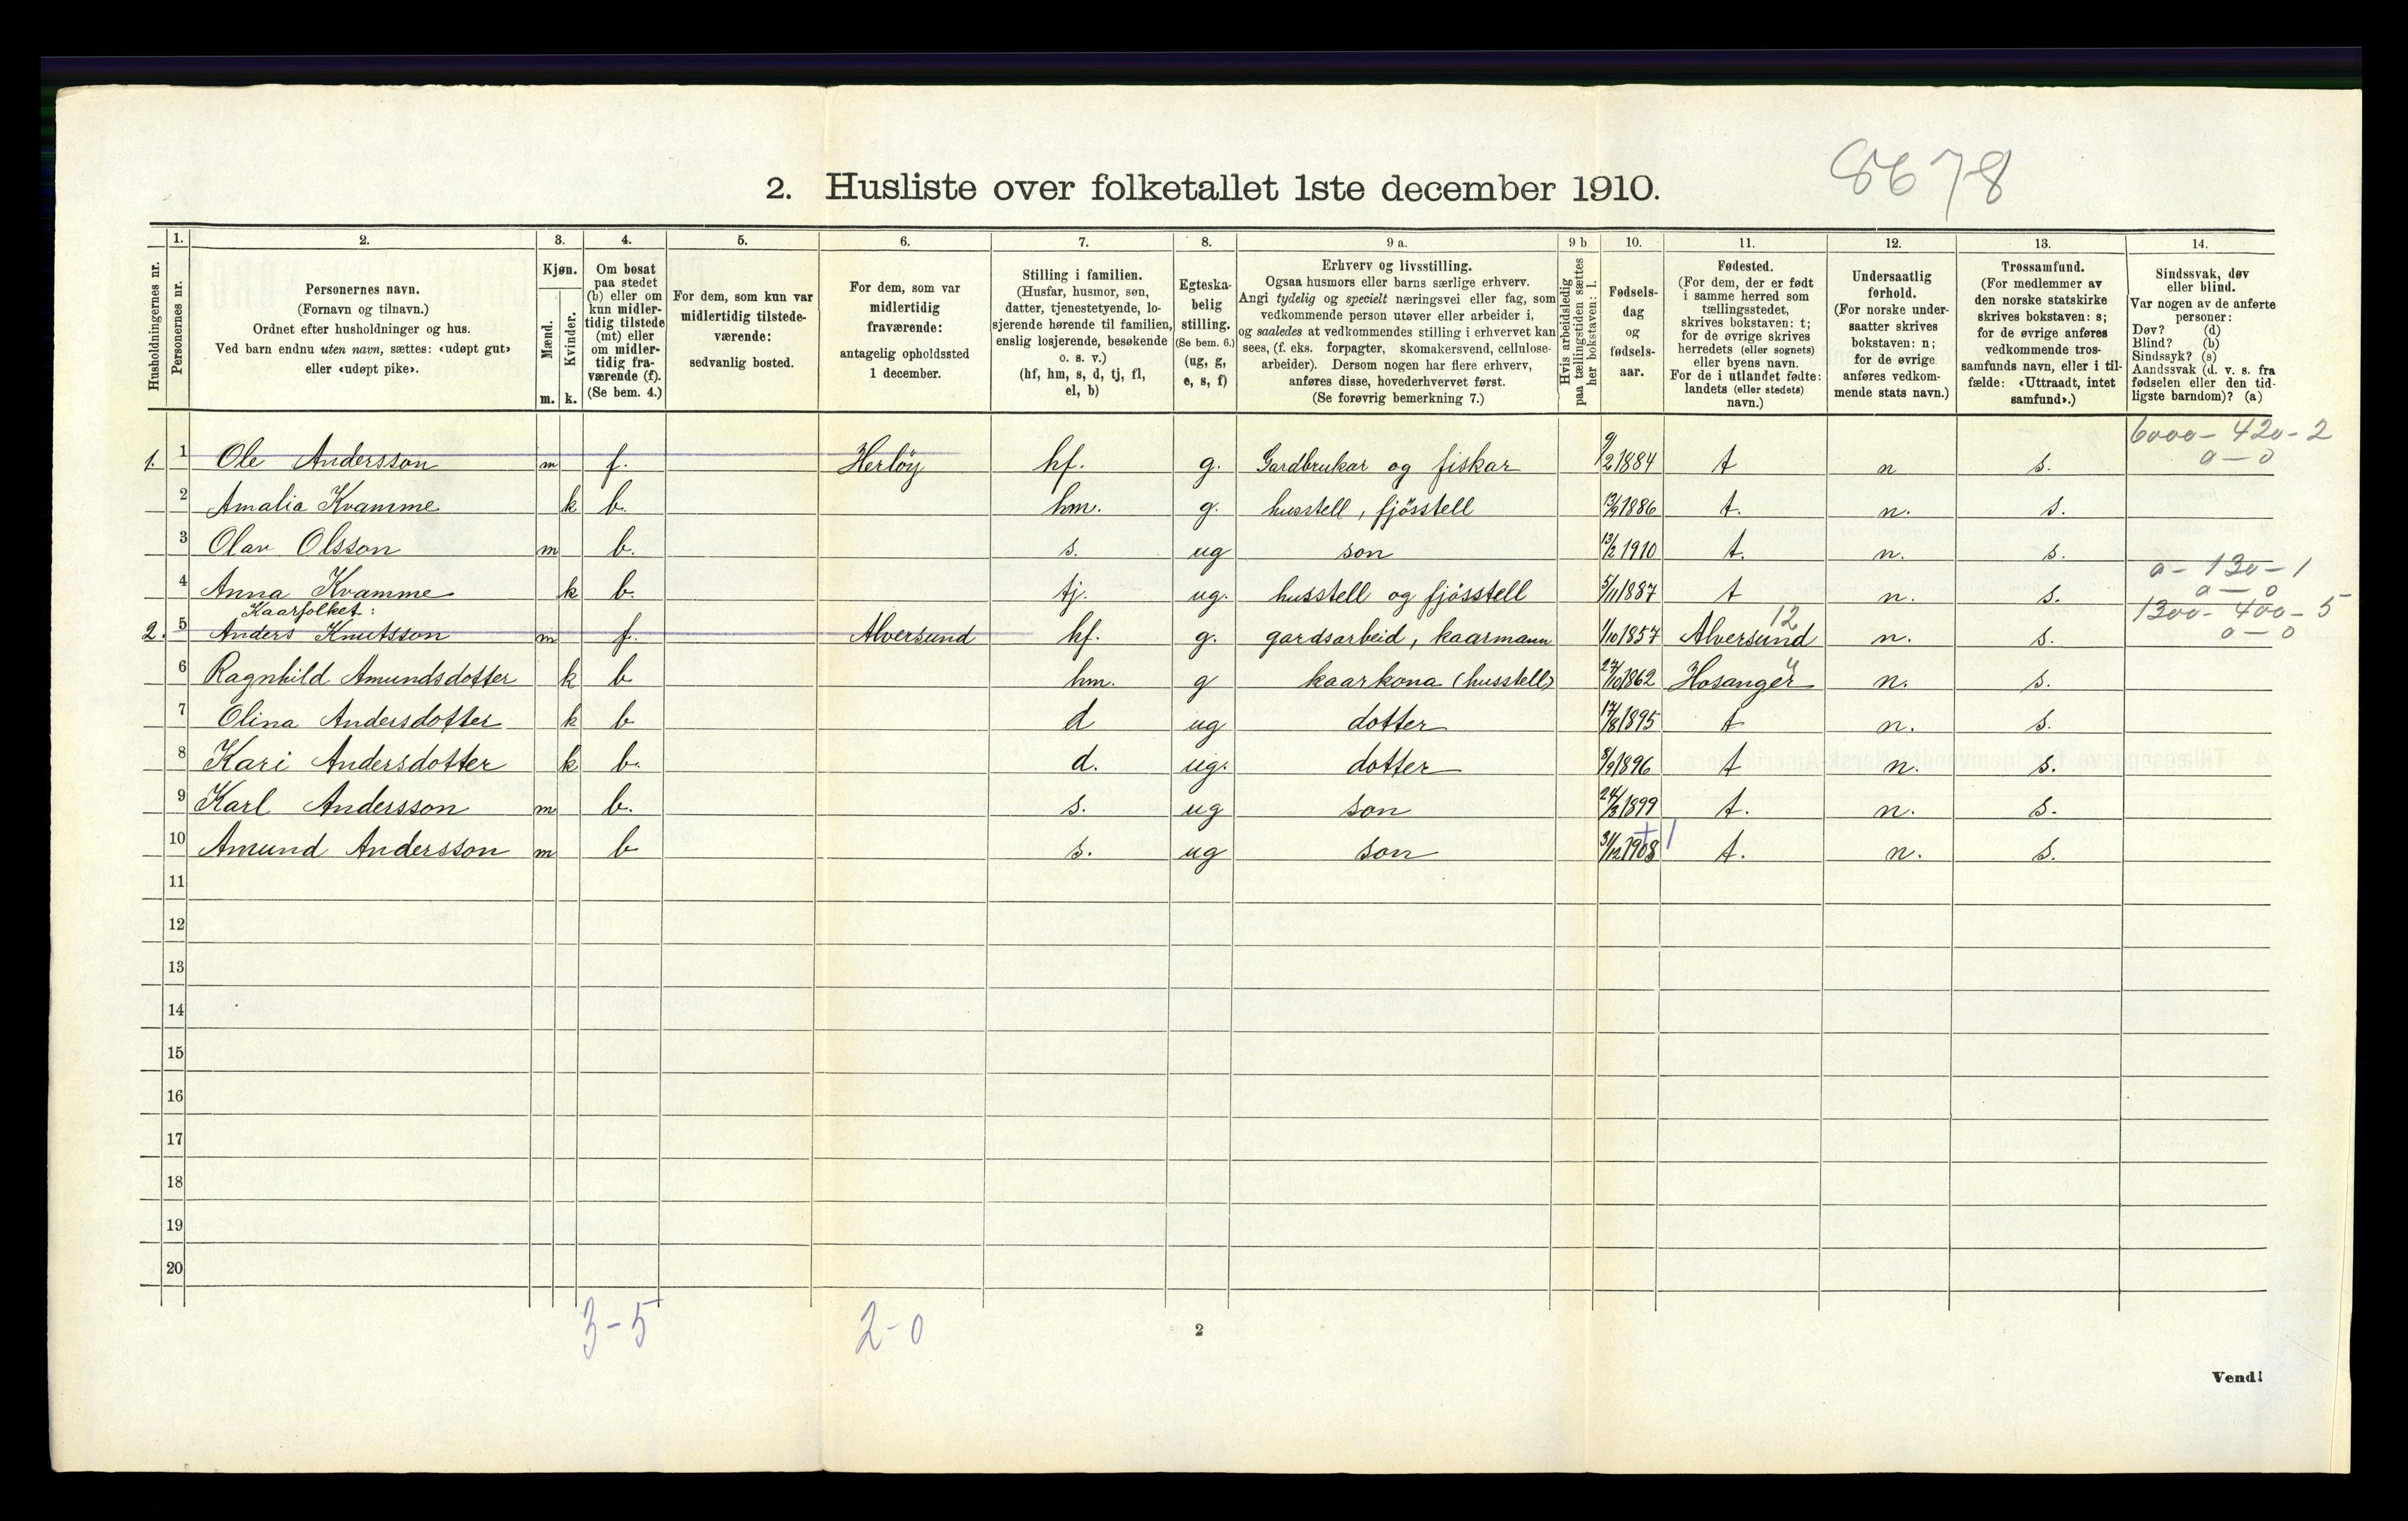 8678
2. Husliste over folketallet 1ste december 1910.
Husholdningernes nr.
1.
Personernes nr.
2.
Personernes navn.
(Fornavn og tilnavn.)
Ordnet efter husholdninger og hus.
Ved barn endnu uten navn, sættes: «udøpt gut»
eller «udøpt pike».
3.
Kjøn.
Mænd.
Kvinder.
m. k.
4.
Om bosat
paa stedet
(b) eller om
kun midler-
tidig tilstede
(mt) eller
om midler-
tidig fra-
værende (f).
(Se bem. 4.)
5.
For dem, som kun var
midlertidig tilstede-
værende:
sedvanlig bosted.
6.
For dem, som var
midlertidig
fraværende:
antagelig opholdssted
1 december.
7.
Stilling i familien.
(Husfar, husmor, søn,
datter, tjenestetyende, lo-
sjerende hørende til familien,
enslig losjerende, besøkende
o. s. v.)
(hf, hm, s, d, tj, fl,
el, b)
8.
Egteska-
belig
stilling.
(Se bem. 6.)
(ug, g,
e, s, f)
9 a.
Erhverv og livsstilling.
Ogsaa husmors eller barns særlige erhverv.
Angi tydelig og specielt næringsvei eller fag, som
vedkommende person utøver eller arbeider i,
og saaledes at vedkommendes stilling i erhvervet kan
sees, (f. eks. forpagter, skomakersvend, cellulose-
arbeider). Dersom nogen har flere erhverv,
anføres disse, hovederhvervet først.
(Se forøvrig bemerkning 7.)
9 b
Hvis arbeidsledig
paa tællingstiden sættes
her bokstaven: l.
10.
Fødsels-
dag
og
fødsels-
aar.
11.
Fødested.
(For dem, der er født
i samme herred som
tællingsstedet,
skrives bokstaven: t;
for de øvrige skrives
herredets (eller sognets)
eller byens navn.
For de i utlandet fødte:
landets (eller stedets)
navn.)
12.
Undersaatlig
forhold.
(For norske under-
saatter skrives
bokstaven: n;
for de øvrige
anføres vedkom-
mende stats navn.)
13.
Trossamfund.
(For medlemmer av
den norske statskirke
skrives bokstaven: s;
for de øvrige anføres
vedkommende tros-
samfunds navn, eller i til-
fælde: «Uttraadt, intet
samfund».)
14.
Sindssvak, døv
eller blind.
Var nogen av de anførte
personer:
Døv? (d)
Blind? (b)
Sindssyk? (s)
Aandssvak (d. v. s. fra
fødselen eller den tid-
ligste barndom)? (a)
6000 - 420 - 2
0 - 0
1. 1 Ole Andersson m f. Herløy hf. g. Gardbrukar og fiskar 9/2 1884 t n s.
2 Amalia Kvamme k b. hm. g. husstell, fjösstell 13/9 1886 t. n. s.
3 Olav Olsson m b. s. ug son 13/2 1910 t. n. s.
0 - 130 - 1
0 - 0
4 Anna Kvamme k b. tj. ug. husstell og fjösstell 5/11 1887 t n. s.
Kaarfolket:
12
1300 - 400 - 5
0 - 0
2. 5 Anders Knutsson m f. Alversund hf. g. gardsarbeid, kaarmann 1/10 1857 Alversund n. s.
6 Ragnhild Amundsdotter k b hm. g kaarkona (husstell) 27/10 1862 Hosanger n. s.
7 Olina Andersdotter k b d ug dotter 17/8 1895 t n. s.
8 Kari Andersdotter k b. d. ug. dotter 8/9 1896 t n. s.
9 Karl Andersson m b. s. ug son 24/3 1899 t. n. s.
10 Amund Andersson m b s. ug son 31/12 1908 t. n. s.
11
12
13
14
15
16
17
18
19
20
3-5 2-0
2
Vend!